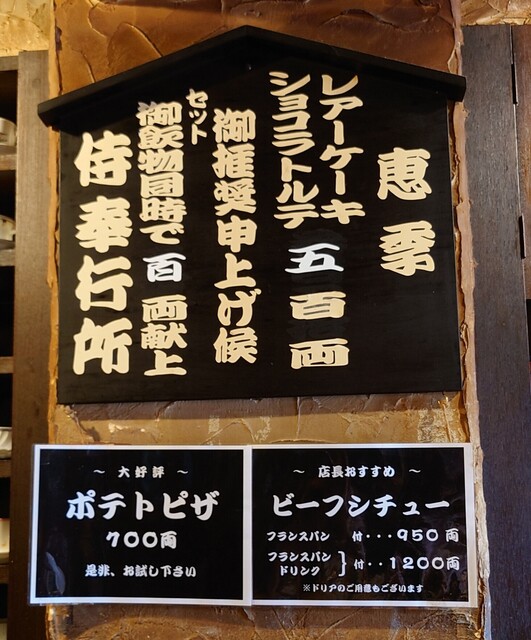 恵季
レアーケーキ
ショコラトルテ 五百両
御推奨申上げ候
セット
御飲物同時で百両献上
侍奉行所
～大好評～
ポテトピザ
700両
是非、お試し下さい
～店長おすすめ～
ビーフシチュー
フランスパン 付・・・950両
フランスパン
ドリンク } 付・・1200両
※ドリアのご用意もございます